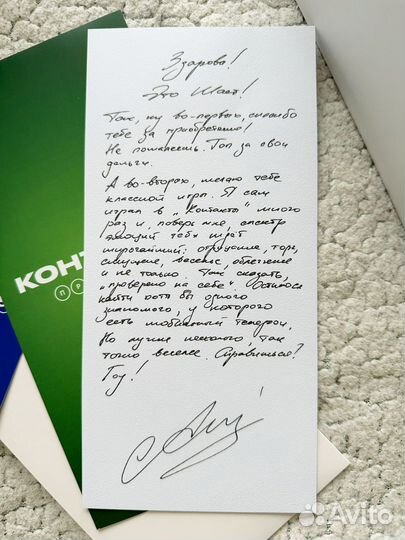 Здарова!
Это Шаст!
Так, ну во-первых, спасибо
тебе за приобретение!
Не пожалеешь. Топ за свои
деньги.
А во-вторых, желаю тебе
классной игры. Я сам
играл в „Контакты" много
раз и, поверь мне, спектр
эмоций тебя ждёт
широчайший:
смущение, веселье, облегчение
и не только. Так сказать,
„проверено на себе". Осталось
найти хотя бы одного
знакомого, у которого
есть мобильный телефон.
Но лучше несколько, так
точно веселее. Справишься?
Гоу!
КОНТ
ПР
Avito